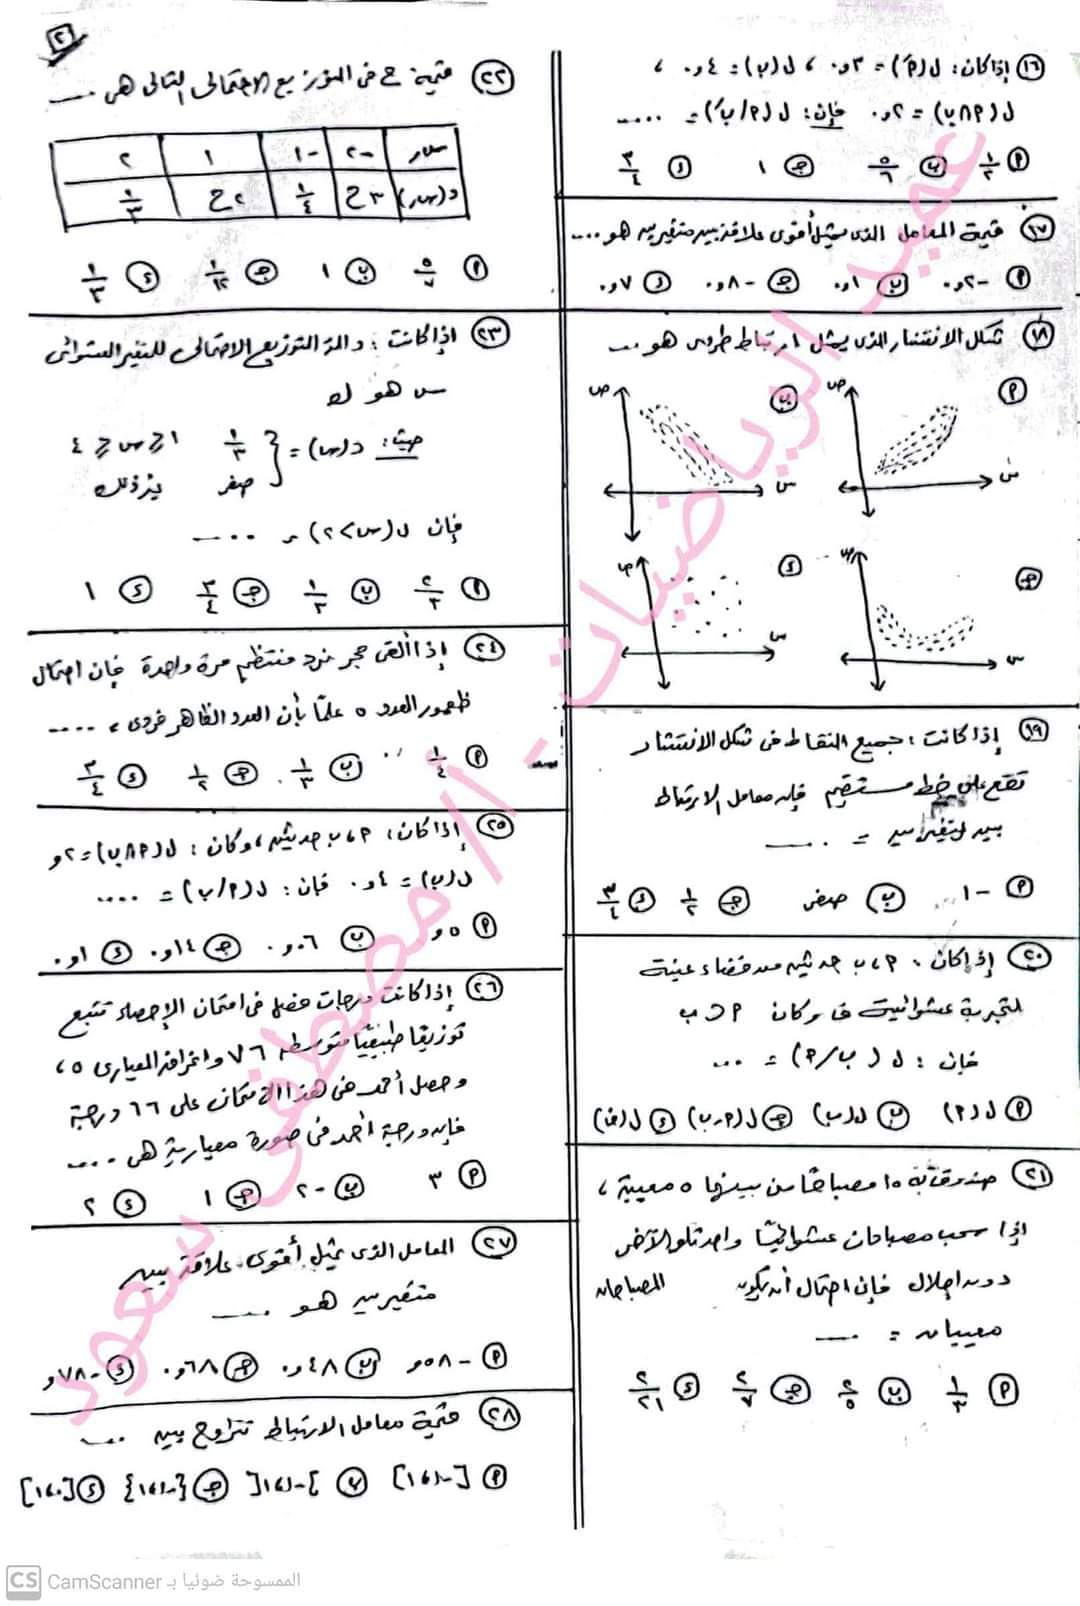 ٢
١٦ إذا كان: ل(أ) = ٠٫٣ ، ل(ب) = ٠٫٤ ،
ل(أ∩ب) = ٠٫٢ فإن: ل(أ/ب) = ....
أ ١/٢ ب ٥/٦ جـ ١ د ٣/٤
١٧ قيمة المعامل الذى يمثل أقوى علاقة بين متغيرين هو ....
أ -٠٫٢ ب ٠٫١ جـ -٠٫٨ د ٠٫٧
١٨ شكل الانتشار الذى يمثل ارتباط طردى هو ....
أ ص س
ب ص س
جـ ص س
د ص س
١٩ إذا كانت: جميع النقاط فى شكل الانتشار
تقع على خط مستقيم فإن معامل الارتباط
بين المتغيرين = ....
أ -١ ب صفر جـ ١/٢ د ٣/٤
٢٠ إذا كان أ، ب حدثين من فضاء عينة
لتجربة عشوائية ف وكان أ ⊂ ب
فإن: ل(ب/أ) = ...
أ ل(أ) ب ل(ب) جـ ل(أ-ب) د ل(ف)
٢١ صندوق به ١٥ مصباحًا من بينها ٥ معيبة ،
إذا سحب مصباحان عشوائيًا واحد تلو الآخر
دون إحلال فإن احتمال أن يكون المصباحان
معيبان = ....
أ ١/٣ ب ٢/٥ جـ ٢/٧ د ٢/٢١
٢٢ قيمة ح فى التوزيع الاحتمالى التالى هى ....
سر -٢ -١ ١ ٢
د(سر) ٣ح ١/٤ ٢ح ١/٣
أ ٥/٧ ب ١ جـ ١/١٢ د ١/٣
٢٣ إذا كانت: دالة التوزيع الاحتمالى للمتغير العشوائى
س هو له
حيث: د(س) = { ١/٣ ١ ≤ س ≤ ٤
صفر غير ذلك
فإن ل(س > ٢) = ....
أ ٢/٣ ب ١/٣ جـ ٣/٤ د ١
٢٤ إذا ألقى حجر نرد منتظم مرة واحدة فإن احتمال
ظهور العدد ٥ علمًا بأن العدد الظاهر فردى = ....
أ ١/٤ ب ١/٣ جـ ١/٢ د ٣/٤
٢٥ إذا كان: أ، ب حدثين ، وكان: ل(أ∩ب) = ٢و
ل(ب) = ٠٫٤ فإن: ل(أ/ب) = ....
أ ٥و ب ٠٫٠٦ جـ ٠٫١٤ د ٠٫١
٢٦ إذا كانت درجات فصل فى امتحان الإحصاء تتبع
توزيعًا طبيعيًا متوسطه ٧٦ وانحرافه المعيارى ٥ ،
وحصل أحمد فى هذا الامتحان على ٦٦ درجة
فإن درجة أحمد فى صورة معيارية هى ....
أ ٣ ب -٢ جـ ١ د ٢
٢٧ المعامل الذى يمثل أقوى علاقة بين
متغيرين هو ....
أ -٥٨و ب ٠٫٤٨ جـ ٠٫٦٨ د -٧٨و
٢٨ قيمة معامل الارتباط تتراوح بين ....
أ [-١، ١] ب ]-١، ١[ جـ {-١، ١} د [٠، ١]
عميد الرياضيات - أ/ مصطفى سعود
CS CamScanner الممسوحة ضوئيا بـ